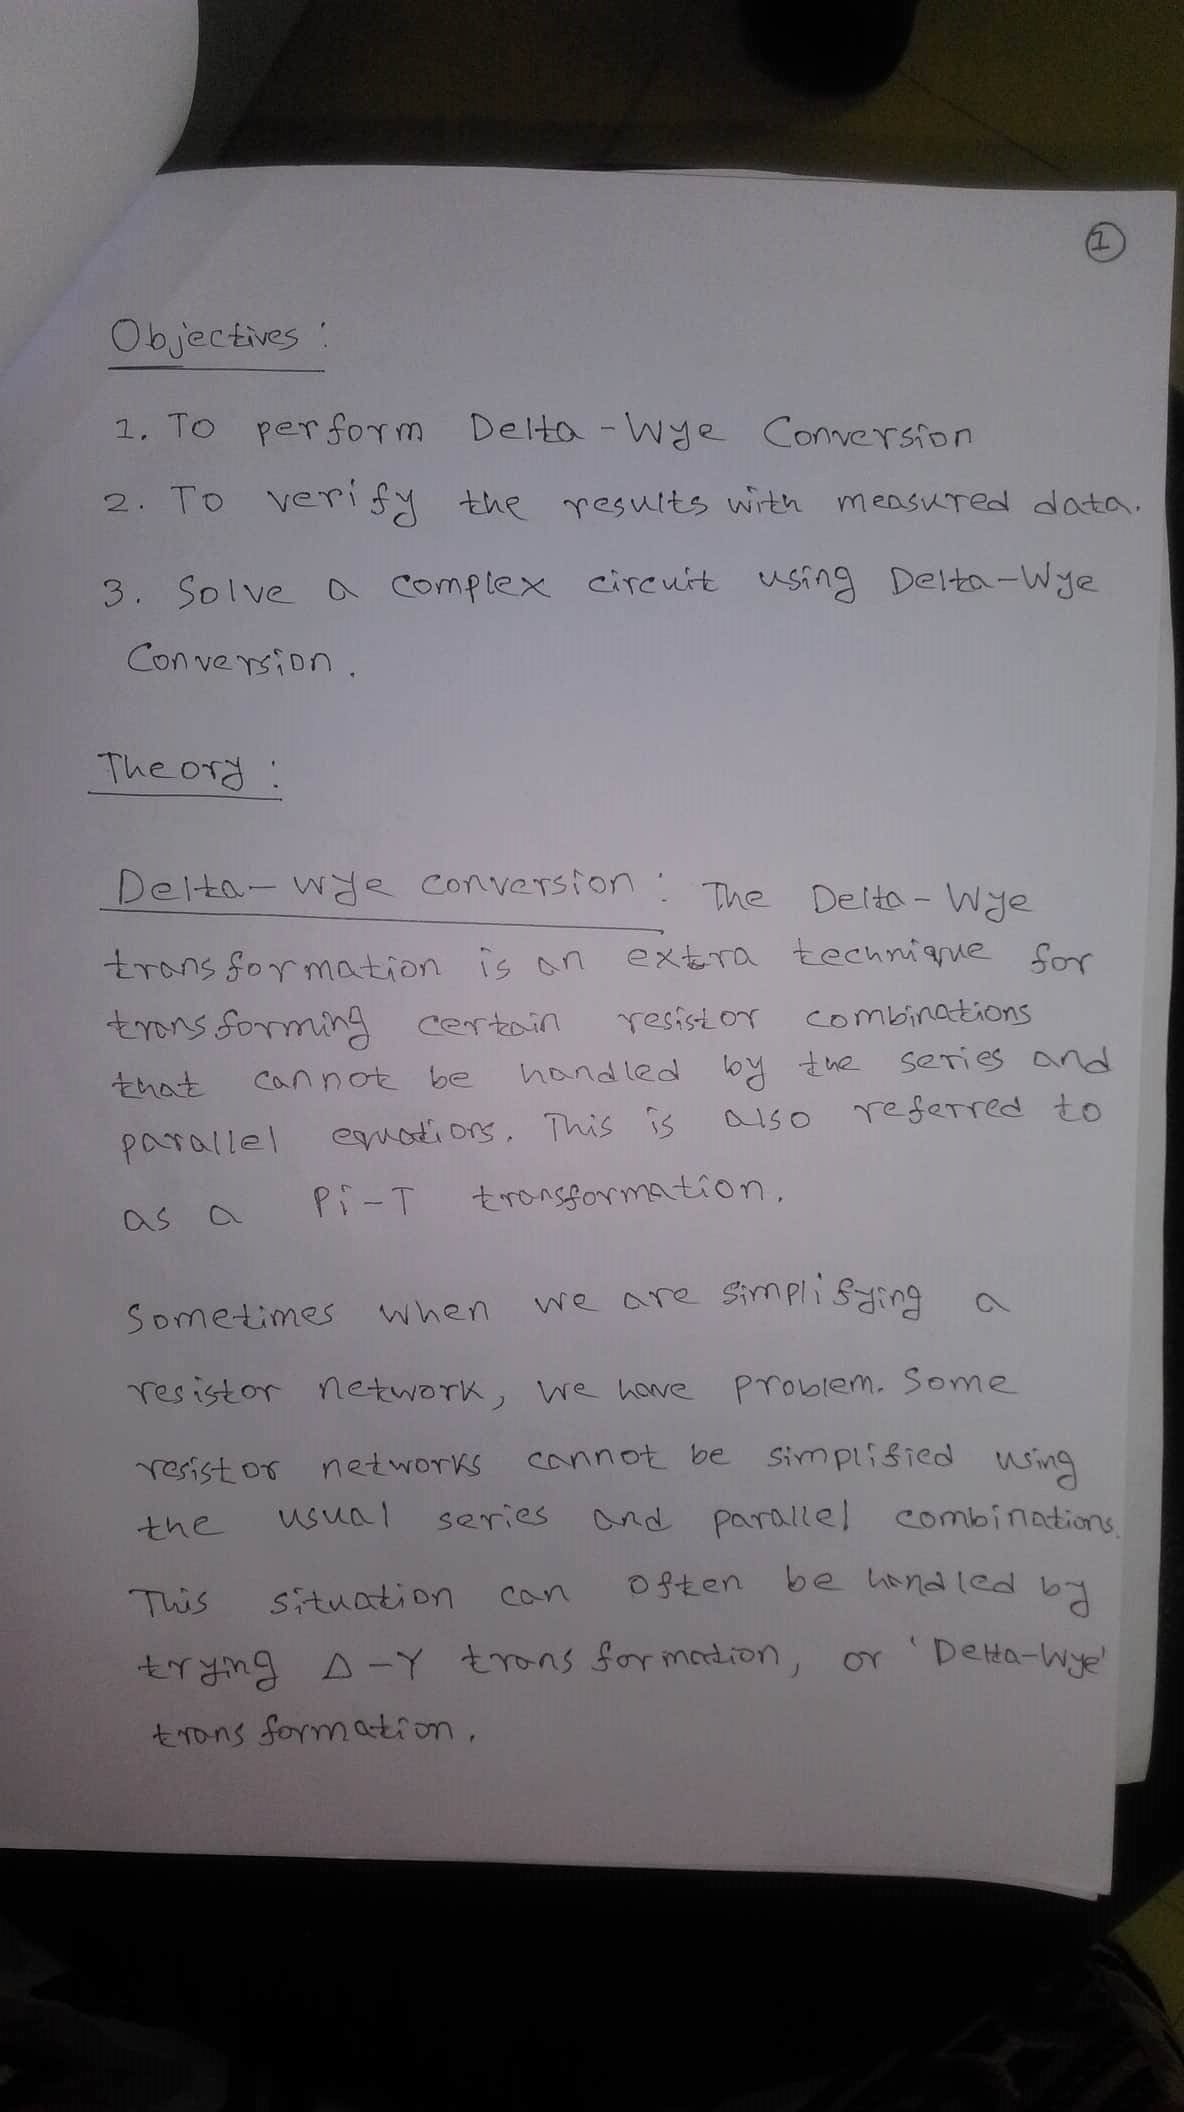 1
Objectives :
1. To perform Delta-Wye Conversion
2. To verify the results with measured data.
3. Solve a complex circuit using Delta-Wye
Conversion.
Theory :
Delta-wye conversion : The Delta-Wye
transformation is an extra technique for
transforming certain resistor combinations
that cannot be handled by the series and
parallel equations. This is also referred to
as a Pi-T transformation.
Sometimes when we are simplifying a
resistor network, we have problem. Some
resistor networks cannot be simplified using
the usual series and parallel combinations.
This situation can often be handled by
trying Δ-Y transformation, or 'Delta-Wye'
transformation.